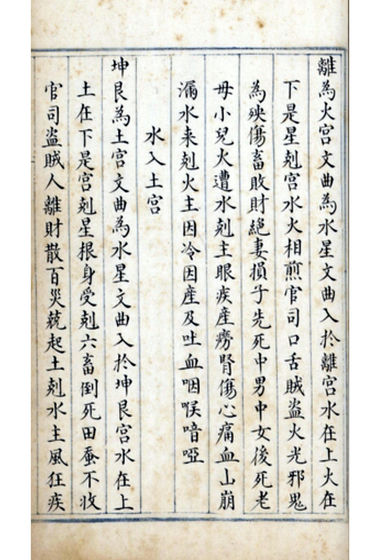 離為火宮文曲為水星文曲入於離宮水在上火在
下是星剋宮水火相煎官司口舌賊盜火光邪鬼
為殃傷畜敗財絕妻損子先死中男中女後死老
母小兒火遭水剋主眼疾產癆腎傷心痛血山崩
漏水来剋火主因冷因産及吐血咽喉喑啞
水入土宮
坤艮為土宮文曲為水星文曲入於坤艮宮水在上
土在下是宮剋星根身受剋六畜倒死田蚕不收
官司盜賊人離財散百災競起土剋水主風狂疾